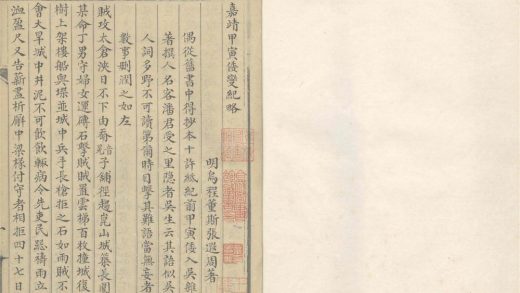 嘉靖甲寅倭變紀略
明烏程董斯張遐周著
偶從舊書中得抄本十許紙紀前甲寅倭入吳
著撰人名客潘君受之里隱者吳生云其語似吳
人詞多野不可讀第爾時目擊其難語當無妄者
數事刪潤之如左
賊攻太倉浹日不下由喬子鋪徑趨崑山城築長圍
某命丁男守婦女運磚石擊賊賊置雲梯百枚撞城復
樹上架樓船與堞並城中兵手長槍拒之石如雨賊不
會大旱城中井泥不可飲飲輒病令先吏民懇禱雨立
盈尺又告薪盡析廨中梁椽付守者相拒四十七日